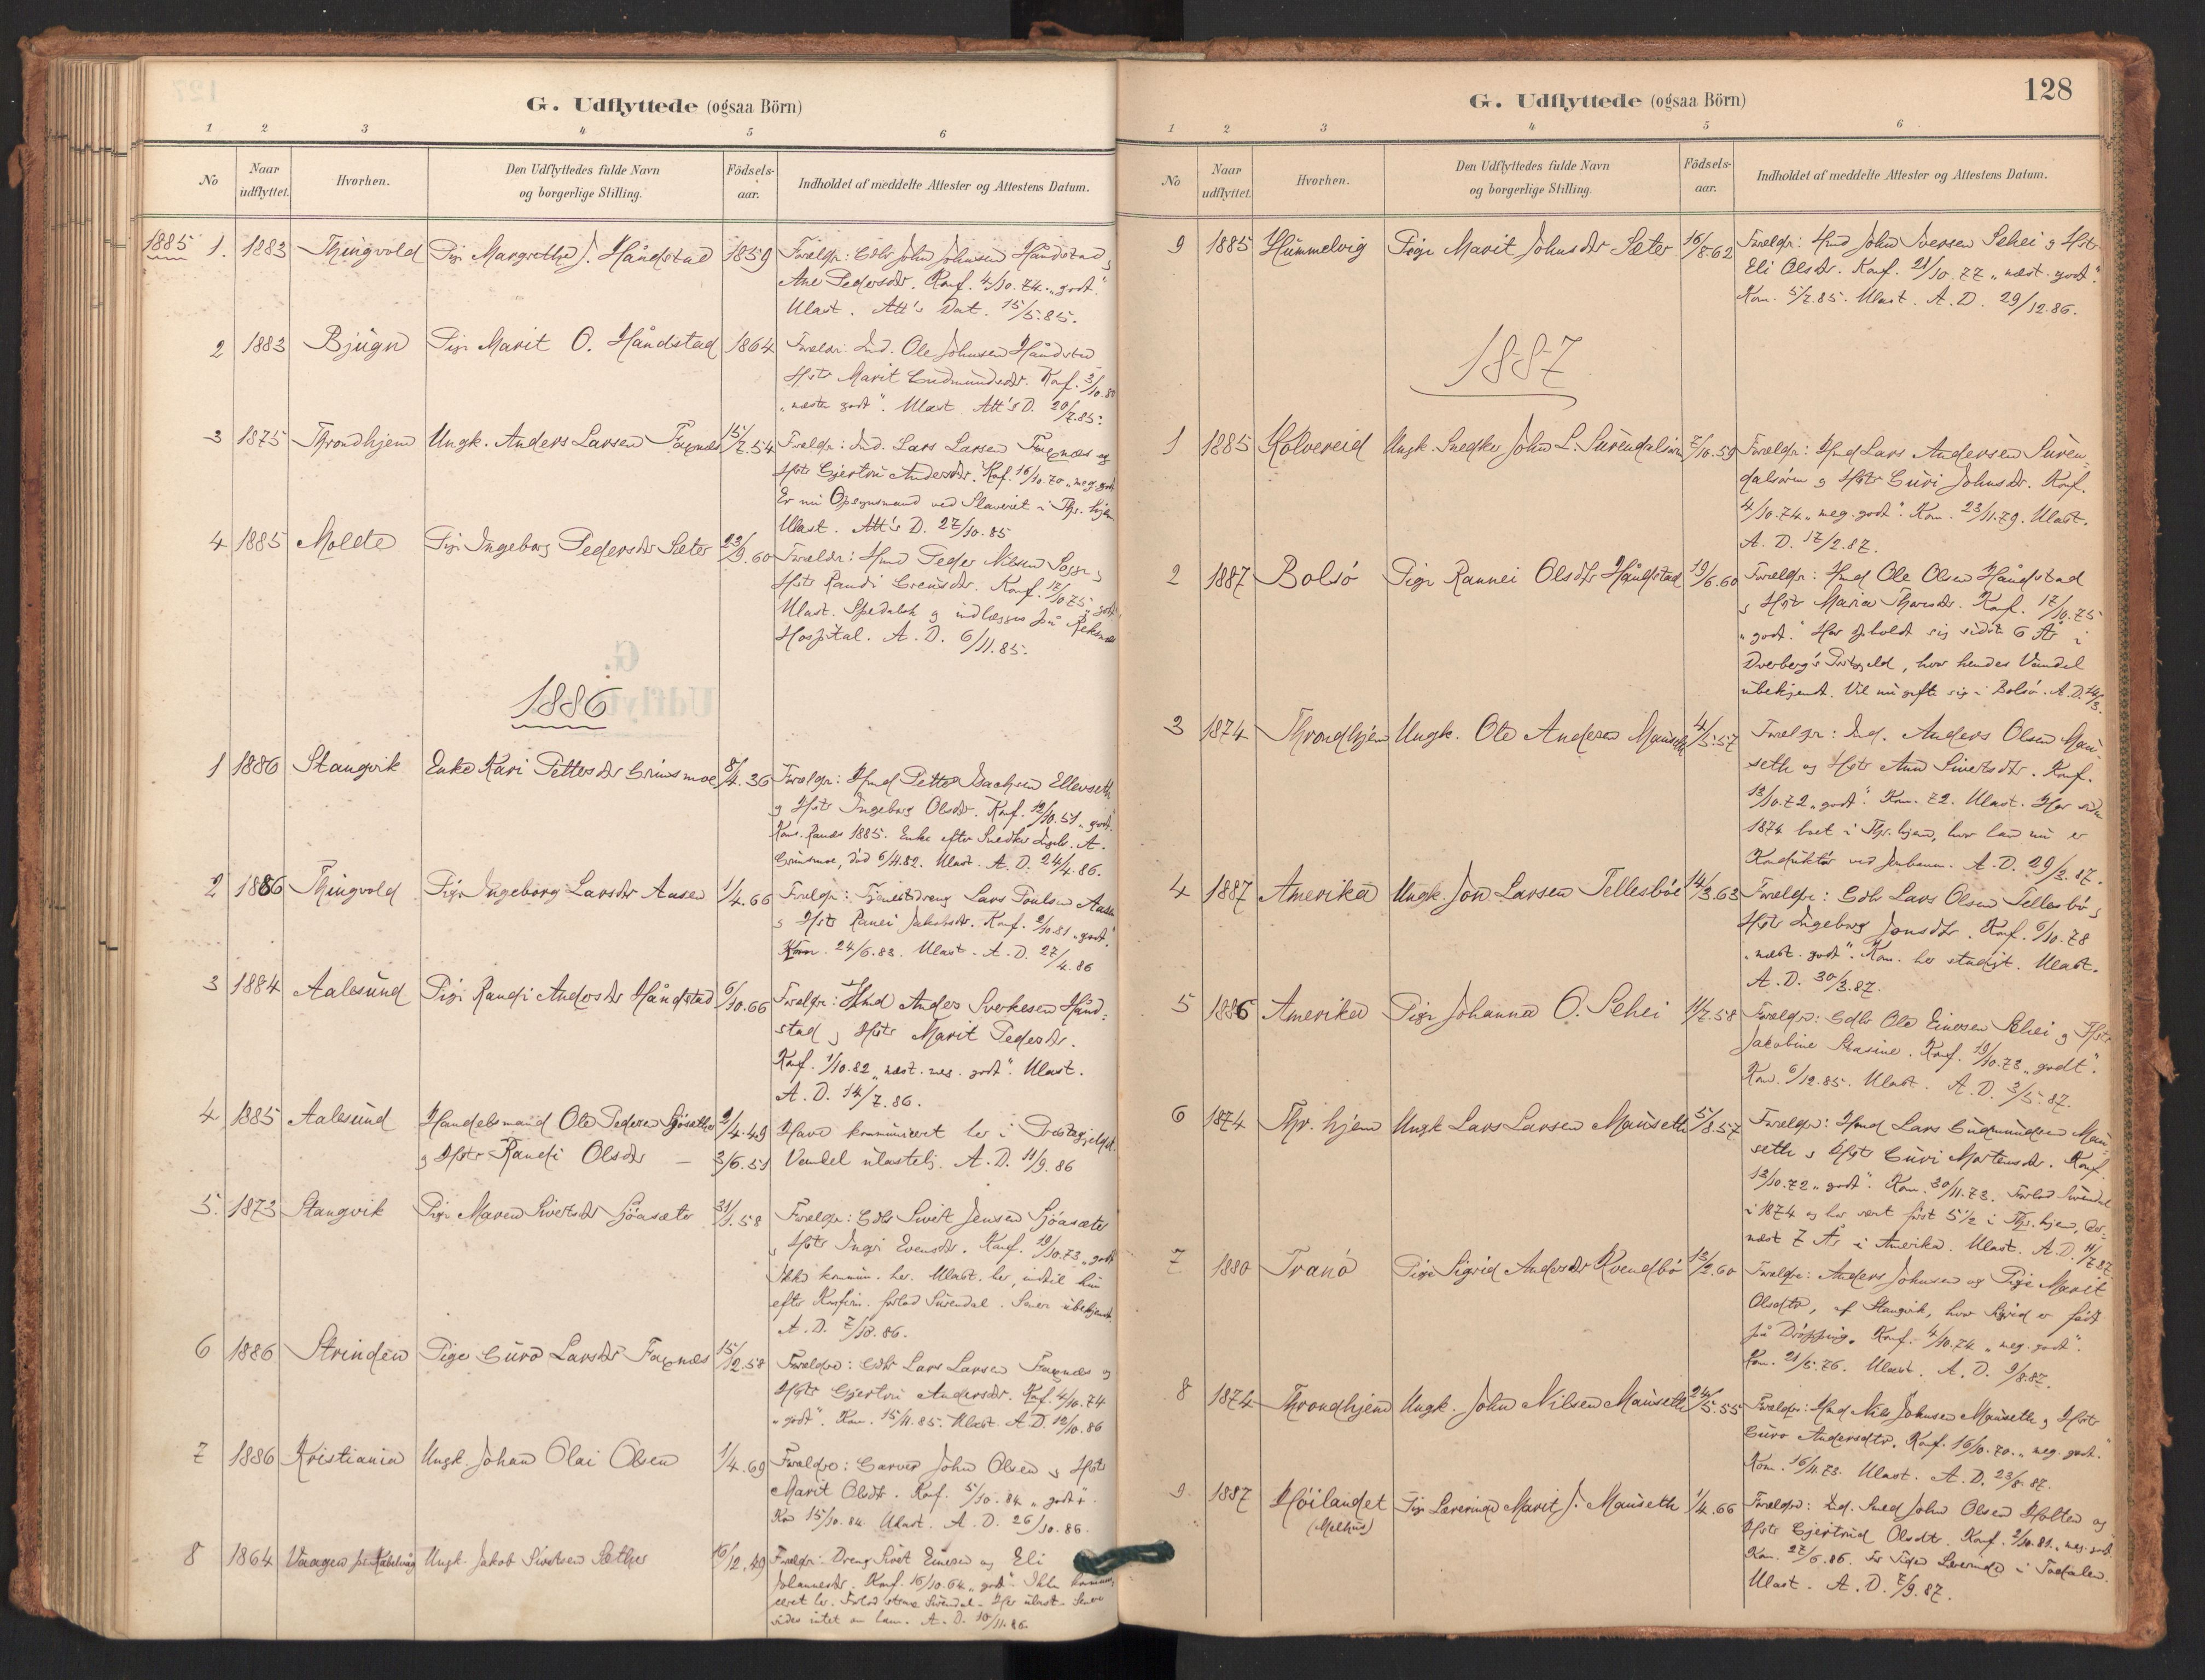 G. Udflyttede (ogsaa Börn)
1 2 3 4 5 6
No Naar udflyttet. Hvorhen. Den Udflyttedes fulde Navn og borgerlige Stilling. Födsels-aar. Indholdet af meddelte Attester og Attestens Datum.
1885 1. 1883 Thingvold Pige Margrethe J. Håndstad 1859 Forældr: Gdbr John Johnsen Håndstad
Ane Pedersdtr. Konf. 4/10.74 "godt."
Ulast. Att's Dat. 15/5.85.
2 1883 Bjugn Pige Marit O. Håndstad 1864 Forældr: Ind. Ole Johnsen Håndstad
Hstr Marit Gudmundsdtr. Konf. 3/10.80
"næsten godt". Ulast. Att's D. 20/7.85.
3 1875 Throndhjem Ungk. Anders Larsen Foxnæs 15/7.54 Forældr: Ind. Lars Larsen Foxnæs og
Hstr Gjertru Andersdtr. Konf. 16/10.70 "meg. godt
Er nu Opsynsmand ved Slaveriet i Thr. hjem.
Ulast. Att's D. 27/10.85
4 1885 Molde Pige Ingeborg Pedersdtr Sæter 23/9.60 Forældr: Hmd Peder Nilsen
Hstr Randi Konf. 17/10.75 "godt"
Ulast. Spedalsk og indlægges på Reknæs
Hospital. A. D. 6/11.85.
1886
1 1886 Stangvik Enke Kari Pettersdtr Grimsmoe 8/4.36 Forældr: Hmd Petter Isachsen Ellevseth
og Hstr Ingeborg Olsdr. Konf. 12/10.51 "godt.
1885. Enke efter Snedker A.
Grimsmoe, död 6/4.82. Ulast. A. D. 24/4.86.
2 1886 Thingvold Pige Ingeborg Larsdtr Aasen 1/4.66 Forældr: Tjenestdreng Lars Aasen
Hstr Ranei Jakobsdtr. Konf. 2/10.81 "godt."
Kom. 24/6.83. Ulast. A. D. 27/4.86
3 1884 Aalesund Pige Randi Andersdtr Håndstad 6/10.66 Forældr: Hmd Anders Sverkesen Hånd-
stad og Hstr Marit Pedersdtr.
Konf. 1/10.82 "næst. meg. godt". Ulast.
A. D. 14/7.86.
4 1885 Aalesund Handelsmand Ole Pedersen Sjösæther 2/4.49 Have kommuniceret her i Præstegjeldet.
og Hstr Randi Olsdtr — 3/6.51 Vandel ulastelig. A. D. 11/9.86
5. 1873 Stangvik Pige Maren Sivertsdtr Sjöasæter 31/1.58 Forældr: Gdbr Sivert Jensen Sjöasæter
Hstr Ingri Evensdtr. Konf. 19/10.73 "godt
Ikke kommun. her. Ulast. her, indtil hun
efter Konfirm. forlod Surendal. Senere ubekjendt.
A. D. 7/10.86.
6 1886 Strinden Pige Guro Larsdtr Foxnæs 15/12.58 Forældre: Gdbr Lars Larsen Foxnæs og
Hstr Gjertru Andersdtr. Konf. 4/10.74
"godt". Kom. 15/11.85. Ulast. A. D. 12/10.86
7 1886 Kristiania Ungk. Johan Olai Olsen 1/4.69 Forældre: Garver John Olsen og Hstr
Marit Olsdtr. Konf. 5/10.84 "godt".
Kom 15/10.84. Ulast. A. D. 26/10.86.
8 1864 Vaagen pr. Kabelvåg Ungk. Jakob Sivertsen Sæther 16/12.49 Forældr: Dreng Sivert Einersen og Eli
Johannesdtr. Konf. 16/10.64 "godt". Ikke kommuni-
ceret her. Forlod strax Surendal. Her ulast. Senere
vides intet om ham. A. D. 10/11.86.
128
G. Udflyttede (ogsaa Börn)
1 2 3 4 5 6
No Naar udflyttet. Hvorhen. Den Udflyttedes fulde Navn og borgerlige Stilling. Födsels-aar. Indholdet af meddelte Attester og Attestens Datum.
9 1885 Hummelvig Pige Marit Johnsdtr Sæter 16/8.62 Forældr: Hmd John Iversen Schei og Hstr
Eli Olsdtr. Konf. 21/10.77 "næst. godt".
Kom. 5/7.85. Ulast. A. D. 29/12.86.
1887
1 1885 Kolvereid Ungk. Snedker John L. Surendalsören 7/10.59 Forældr: Hmd Lars Andersen Suren-
dalsören og Hstr Guri Johnsdtr. Konf.
4/10.74 "meg. godt". Kom. 23/11.79. Ulast.
A. D. 17/2.87.
2 1887 Bolsö Pige Rannei Olsdtr Håndstad 19/6.60 Forældr: Hmd Ole Olsen Håndstad
og Hstr Maria Thoresdtr. Konf. 17/10.75
"godt." Har opholdt sig sidste 6 År i
Dverberg's Prstgjeld, hvor hendes Vandel
ubekjendt. Vil nu gifte sig i Bolsö. A. D. 24/3.
3 1874 Throndhjem Ungk. Ole Andersen Mauseth 4/5.57 Forældr: Ind. Anders Olsen Mau-
seth og Hstr Ann Sivertsdtr. Konf.
13/10.72 "godt". Kom. 72. Ulast. Har siden
1874 boet i Thr. hjem, hvor han nu er
Konduktör ved Jernbanen. A. D. 29/3.87.
4 1887 Amerika Ungk. Jon Larsen Tellesböe 14/3.63 Forældre: Gdbr Lars Olsen Tellesbö og
Hstr Ingeborg Jonsdtr. Konf. 6/10.78
"næst. godt". Kom. her stadigt. Ulast.
A. D. 30/3.87.
5 1886 Amerika Pige Johanna O. Schei 11/7.58 Forældre: Gdbr Ole Einersen Schei og Hstr
Jakobine Stasine. Konf. 19/10.73 "godt".
Kom. 6/12.85. Ulast. A. D. 3/5.87.
6 1874 Thr. hjem Ungk Lars Larsen Mauseth 5/8.57 Forældre: Hmd Lars Gudmundsen Mau-
seth og Hstr Guri Mortensdtr. Konf.
13/10.72 "godt". Kom. 30/11.73. Forlod Surendal
i 1874 og har været först 5½ i Thr. hjem, der-
næst 7 År i Amerika. Ulast. A. D. 11/7.87.
7 1880 Tranö Pige Sigrid Andersdtr Kvendbö 13/2.60 Forældre: Anders Johnsen og Pige Marit
Olsdtr, af Stangvik, hvor Sigrid er födt
på Dröpping. Konf. 4/10.74 "meg. godt".
Kom. 21/5.76. Ulast. A. D. 9/8.87.
8 1874 Throndhjem Ungk. John Nilsen Mauseth 24/5.55 Forældre: Hmd Nils Johnsen Mauseth og Hstr
Guro Andersdtr. Konf. 16/10.70 "meg. godt."
Kom. 16/11.73. Ulast. A. D. 23/8.87.
9. 1887 Höilandet Pige Lærerinde Marit J. Mauseth 1/4.66 Forældre: Ind. Smed John Olsen Holten og
(Melhus) Hstr Gjertrud Olsdt. Konf. 2/10.81 "meg. godt.
Kom. 27/6.86. Lærerinde i Todalen.
Ulast. A. D. 7/9.87.